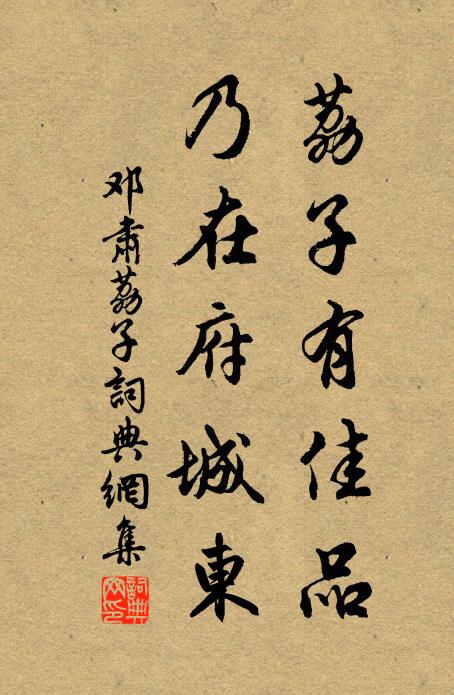 荔子有佳品
乃在府城東
邓肅荔子詞典網集
詞典網印